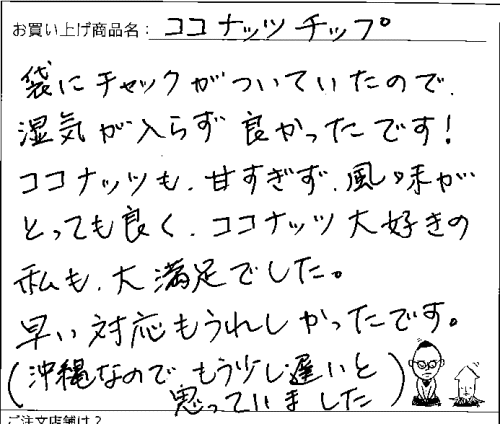 お買い上げ商品名：ココナッツチップ
袋にチャックがついていたので、
湿気が入らず良かったです！
ココナッツも、甘すぎず、風味が
とっても良く、ココナッツ大好きの
私も、大満足でした。
早い対応もうれしかったです。
(沖縄なのでもう少し遅いと
思っていました)
ご注文店舗は？